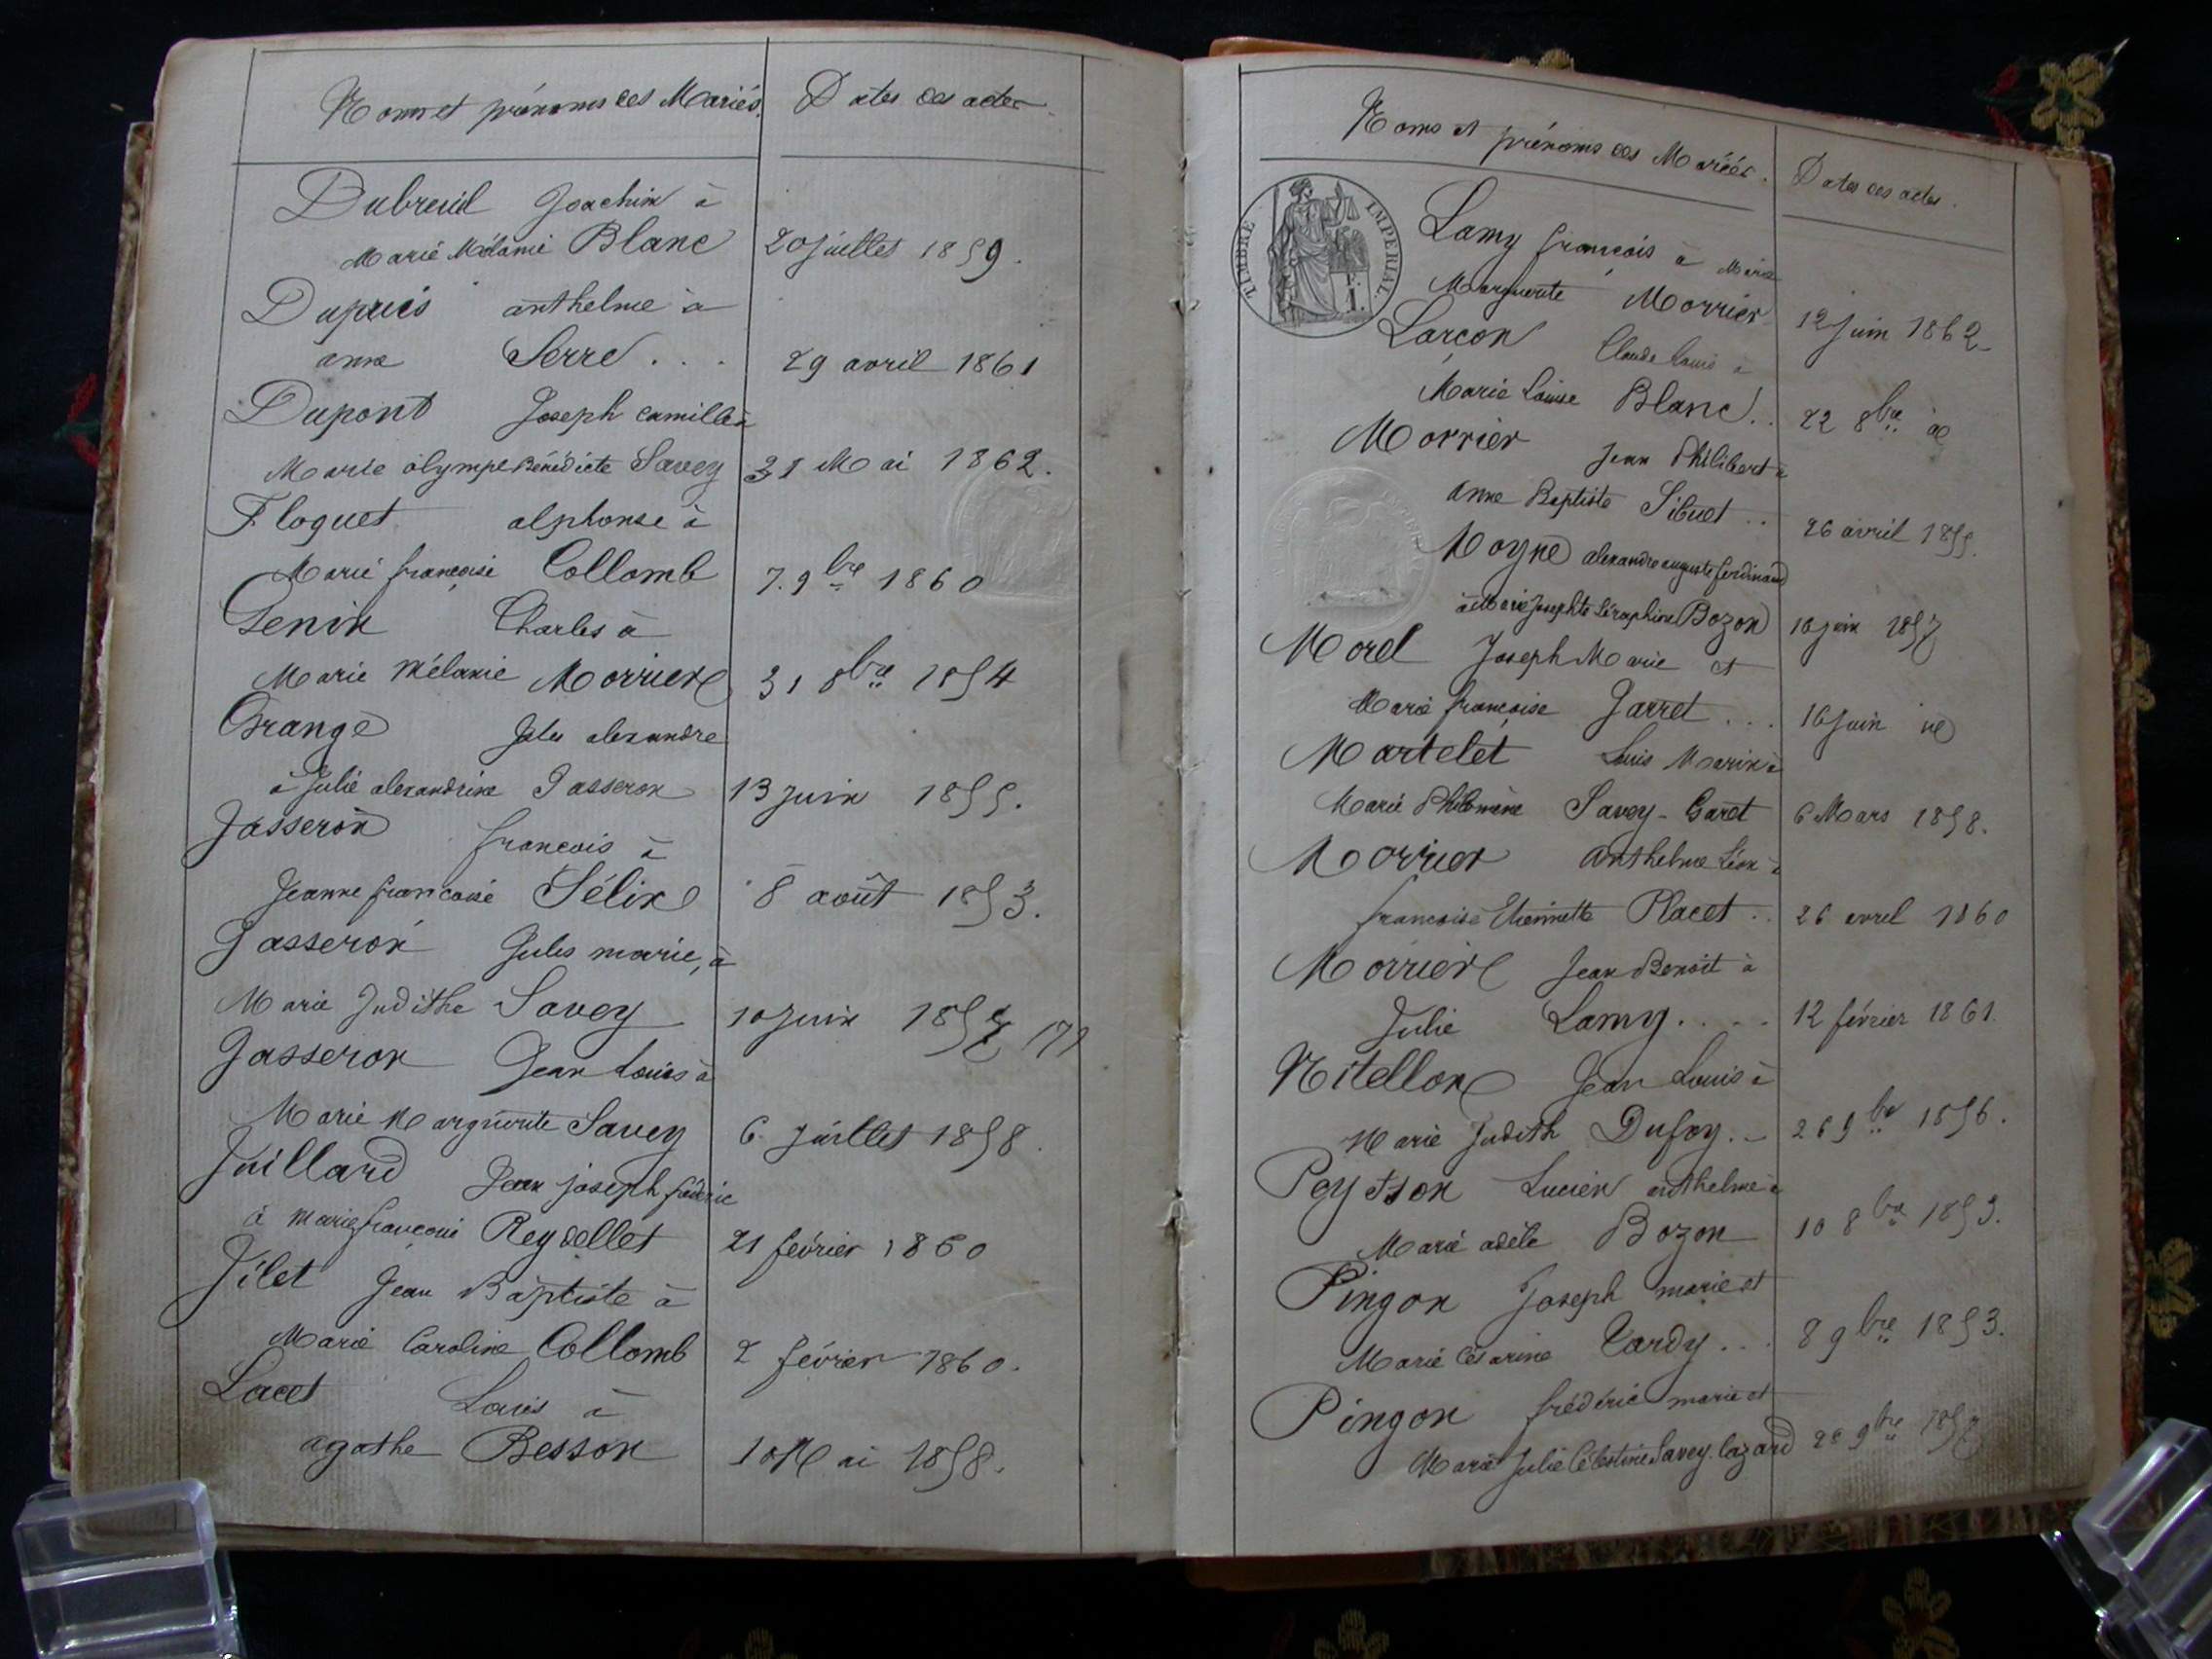 Noms et prénoms des Mariés.
Dates des actes
Dubreuil Joachim à
Marie Mélanie Blanc
20 juillet 1859.
Dupuis anthelme à
anne Serre . . .
29 avril 1861
Dupont Joseph camille à
Marie olympe Bénédicte Savey
31 Mai 1862.
Floquet alphonse à
Marie françoise Collomb
7. 9bre 1860
Genin Charles à
Marie Mélanie Morrier
31 8bre 1854
Grange Jules alexandre
à Julie alexandrine Jasseron
13 juin 1855.
Jasseron francois à
Jeanne francoise Félix
8 août 1853.
Jasseron Jules marie, à
Marie Judithe Savey
10 juin 185
Jasseron Jean Louis à
Marie Marguerite Savey
6 juillet 1858.
Juillard Jean joseph
à Marie françoise Reydellet
21 février 1860
Jilet Jean Baptiste à
Marie Caroline Collomb
2 février 1860.
Lacet Louis à
agathe Besson
10 Mai 1858.
Noms et prénoms des Mariés.
Dates des actes.
TIMBRE IMPERIAL.
Lamy françois à Marie
Marguerite Morrier
12 Juin 1862
Larçon Claude Louis à
Marie Louise Blanc . .
22 8bre
Morrier Jean Philibert à
anne Baptiste Sibuet . .
26 avril 1855.
Moyne alexandre auguste ferdinand
à Marie Josephte Séraphine Bozon
16 juin 1857
Morel Joseph Marie et
Marie françoise Jarret . . .
16 Juin
Martelet Louis Marin à
Marie Philomène Savey-Garet
6 Mars 1858.
Morrier anthelme Léon à
francoise Etiennette Placet . .
26 avril 1860
Morrier Jean Benoit à
Julie Lamy . . . .
12 février 1861.
Nitellon Jean Louis à
Marie Judith Dufoy. -
26 9bre 1856.
Peysson Lucien anthelme à
Marie adèle Bozon
10 8bre 1853.
Pingon Joseph marie et
Marie Césarine Tardy . . .
8 9bre 1853.
Pingon frédéric marie et
Marie Julie Célestine Savey-lazard
20 9bre 1857